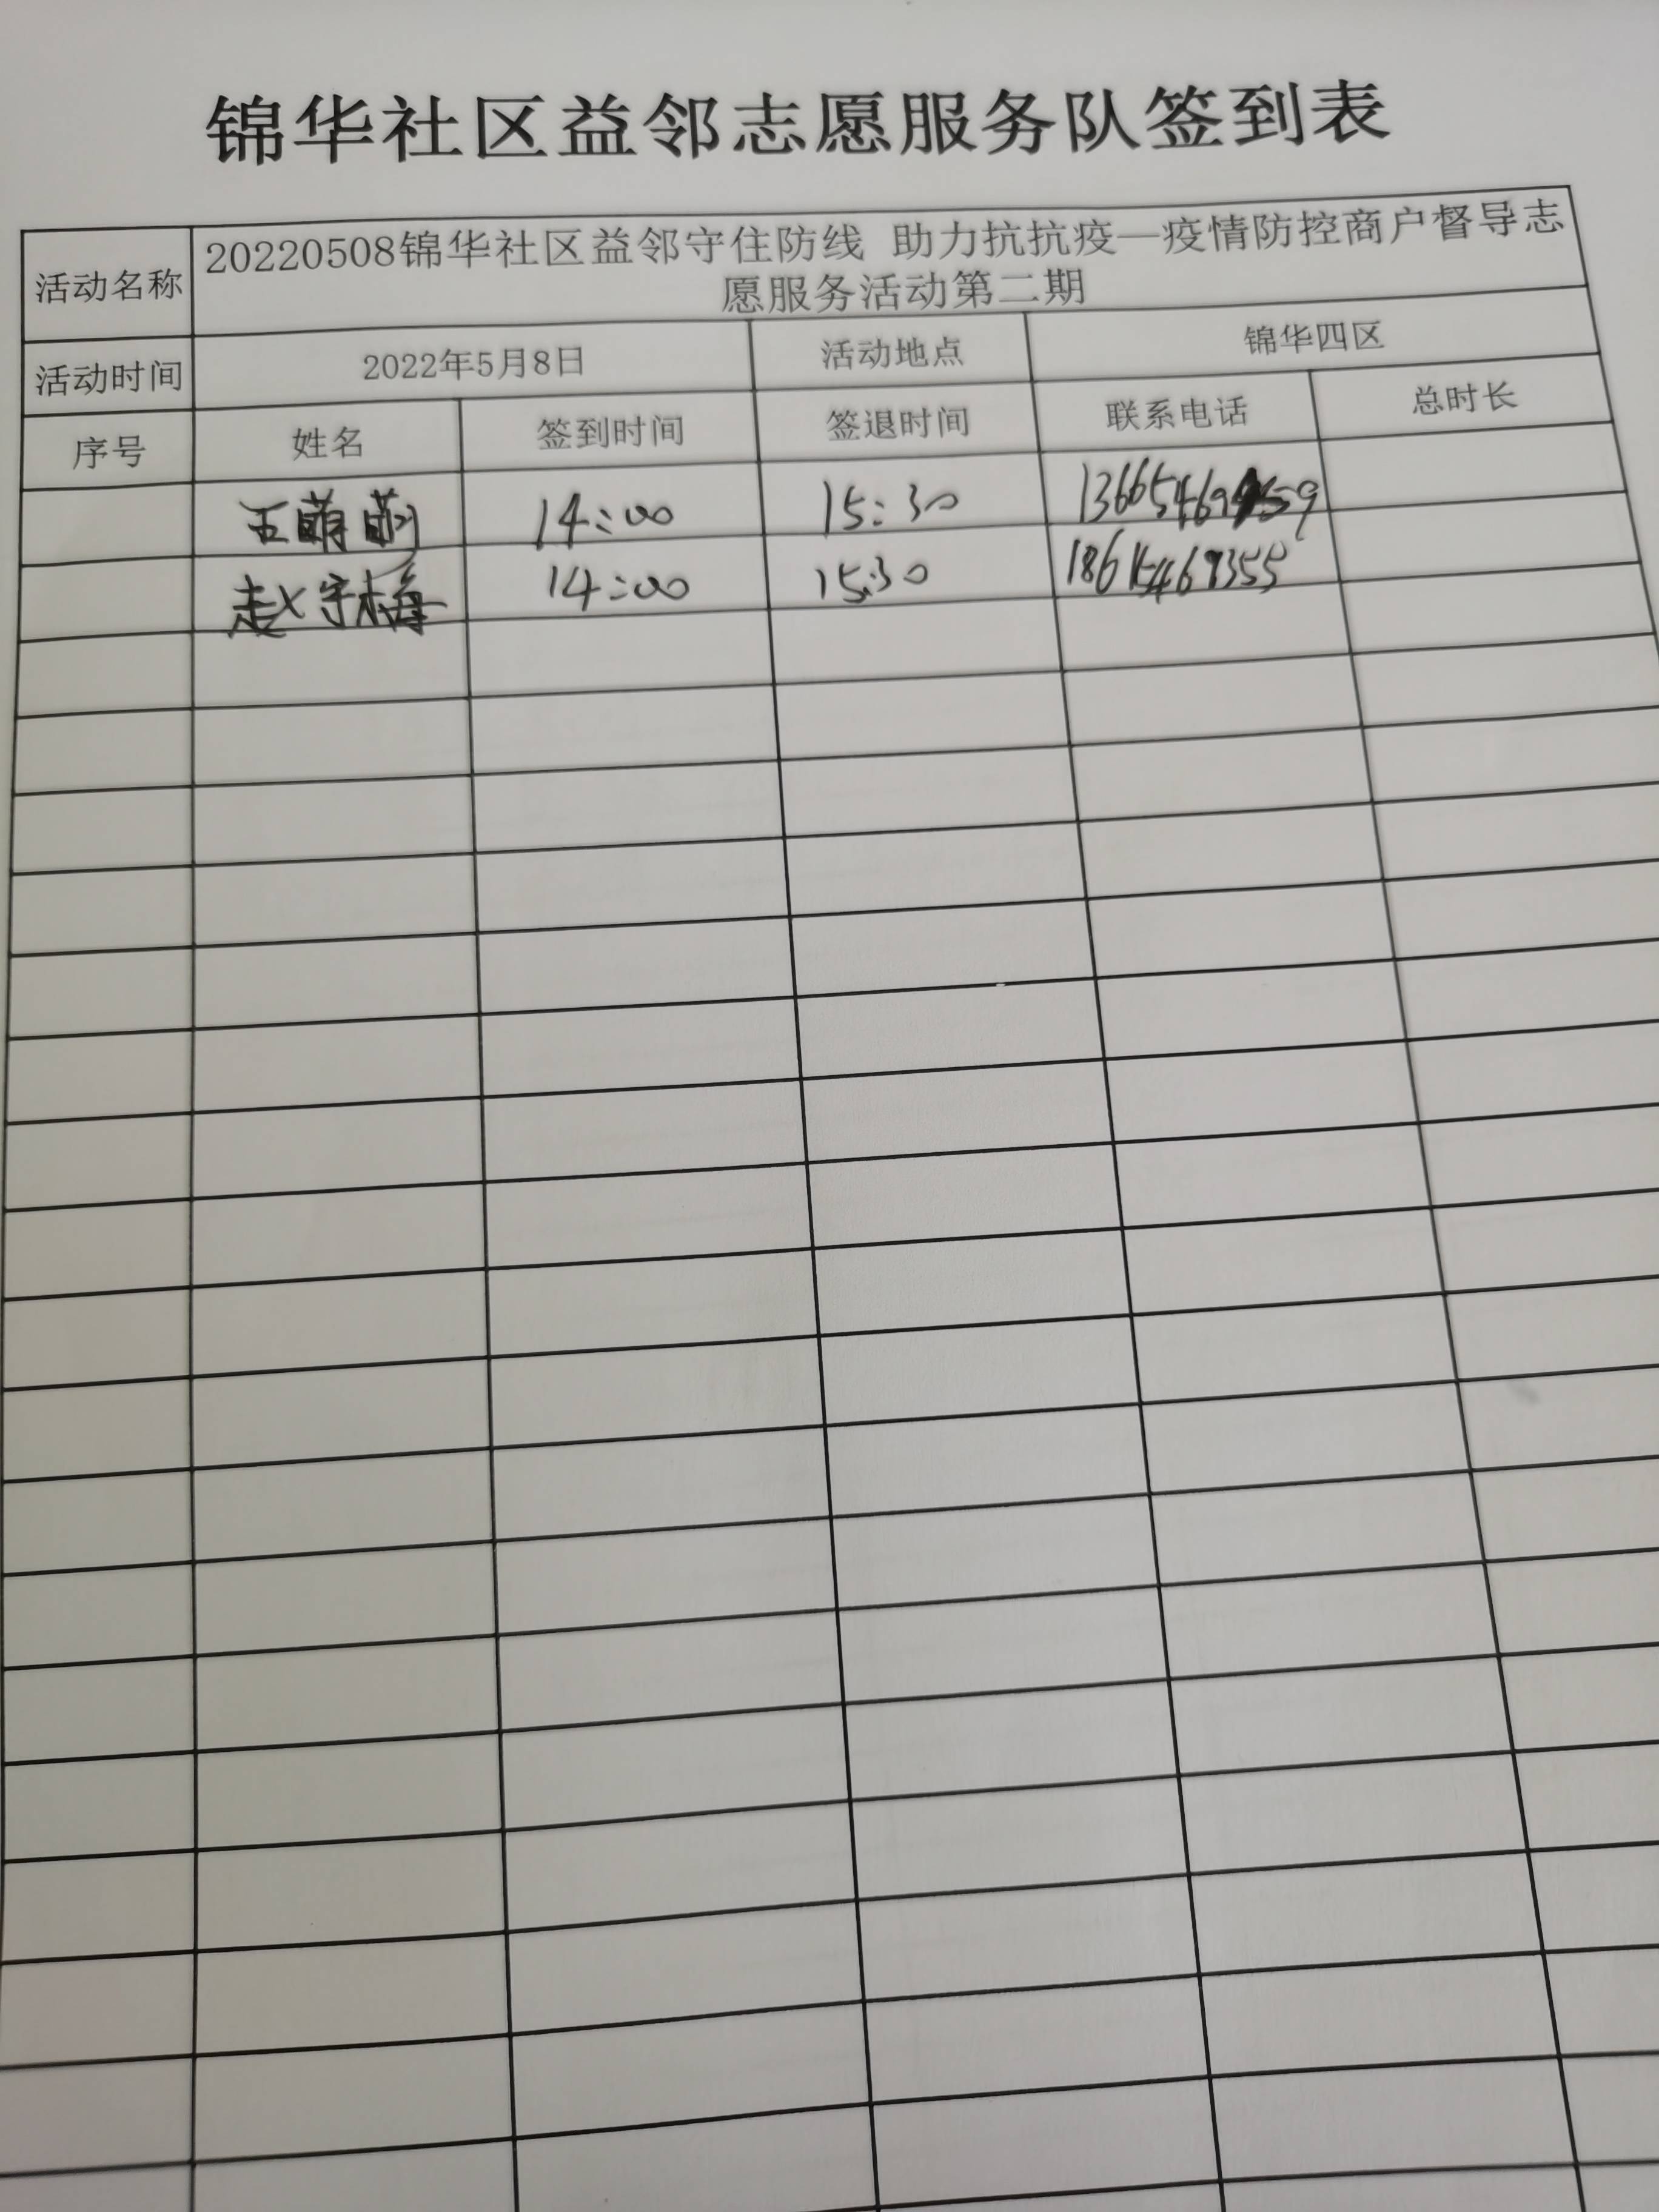 锦华社区益邻志愿服务队签到表
活动名称 20220508锦华社区益邻守住防线 助力抗抗疫—疫情防控商户督导志
愿服务活动第二期
活动时间 2022年5月8日 活动地点 锦华四区
序号 姓名 签到时间 签退时间 联系电话 总时长
王萌萌 14:00 15:30
赵守梅 14:00 15:30